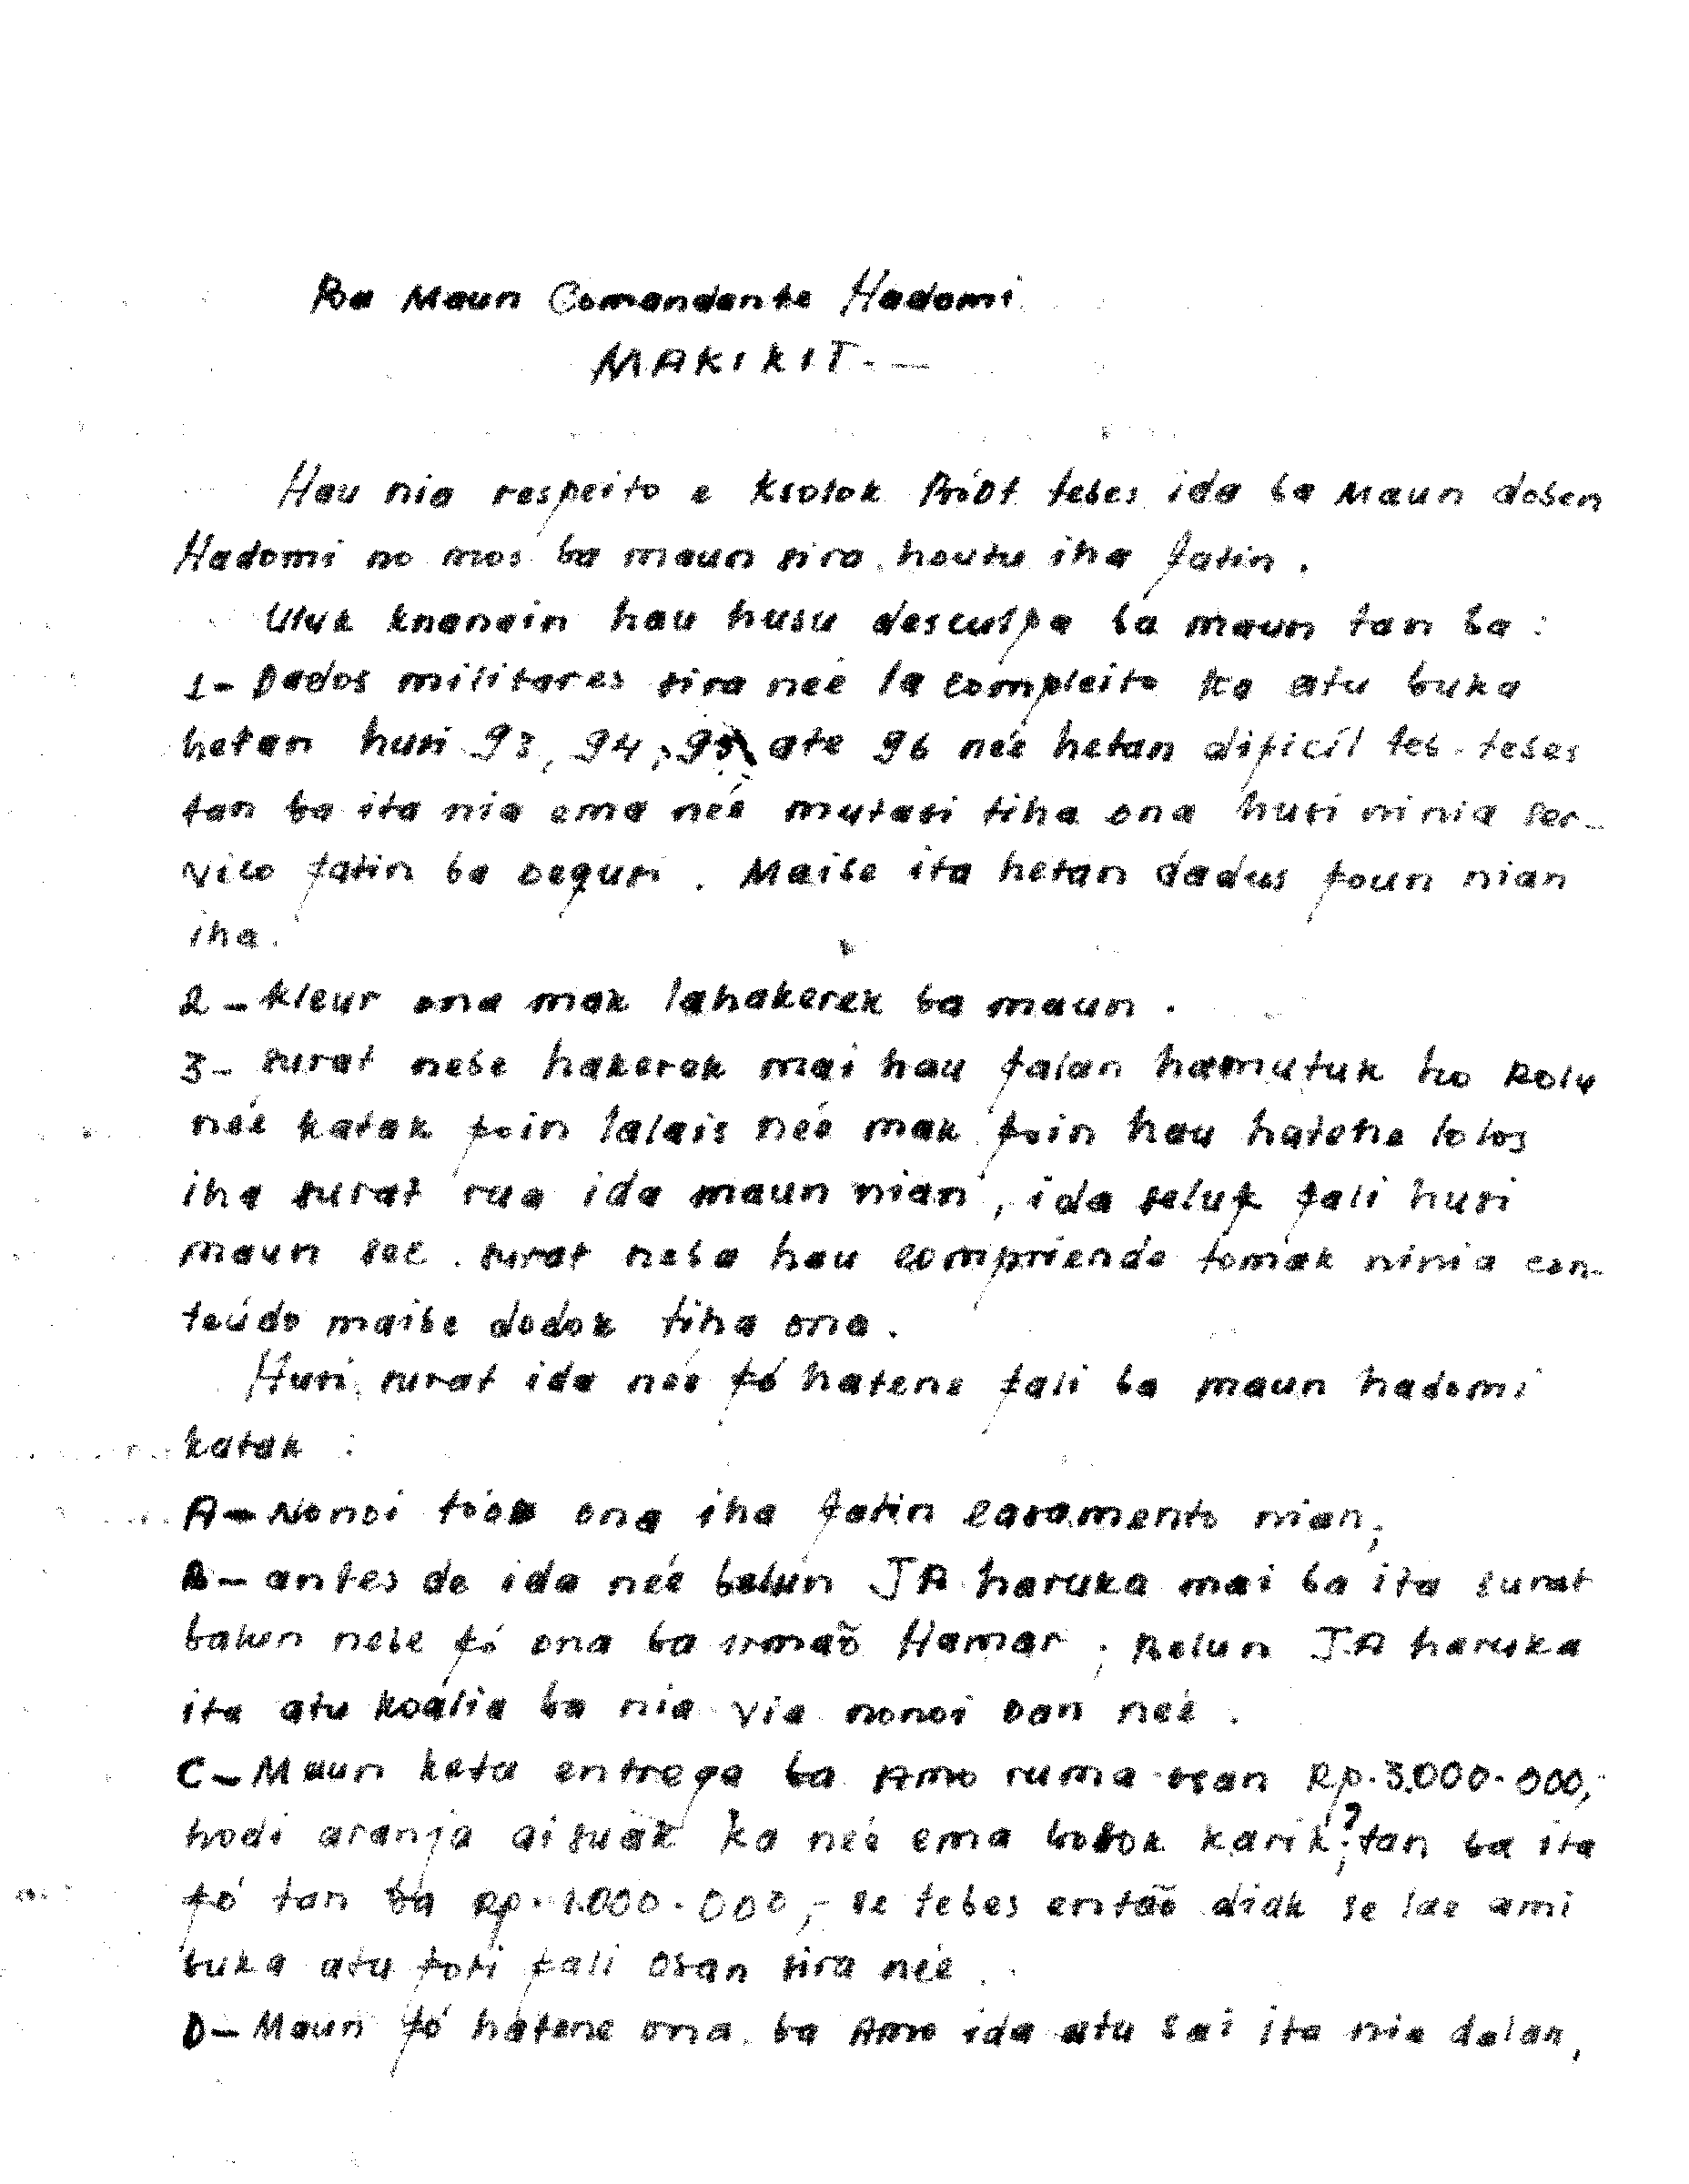 Ba Maun Comandante Hadomi
MAKIKIT. —
Hau nia respeito e ksolok Bóot tebes ida ba Maun doben
Hadomi no mos ba maun sira houtu iha fatin.
Uluk knanain hau husu desculpa ba maun tan ba :
1- Dados militares sira neé la compleito ka atu buka
hetan husi 93, 94, 95, ate 96 neé hetan dificíl teb-tebes
tan ba ita nia ema neé mutasi tiha ona husi ninia ser-
vico fatin ba Bequsi. Maibe ita hetan dadus foun nian
iha.
2- Kleur ona mak lahakerek ba maun.
3- surat nebe hakerek mai hau falan hamutuk ho Rolu
neé katak foin lalais neé mak foin hau hatene lolos
iha surat rua ida maun nian, ida seluk fali husi
maun seé. surat neba hau compriende tomak ninia con-
teúdo maibe dodok tiha ona.
Husi surat ida neé fó hatene fali ba maun hadomi
katak :
A- Nonoi tóok ona iha fatin casamento nian;
B- antes de ida neé belun JA haruka mai ba ita surat
balun nebe fó ona ba irmaõ Hamar; Belun J.A haruka
ita atu koália ba nia via nonoi oan neé.
C- Maun keta entrega ba Amo ruma osan Rp. 3.000.000,-
hodi aranja aisuak ka neé ema bosok karik?; tan ba ita
fó tan ba Rp. 1.000.000,- se tebes entaõ diak se lae ami
buka atu foti fali osan sira neé.
D- Maun fó hatene ona ba Amo ida atu sai ita nia dalan,